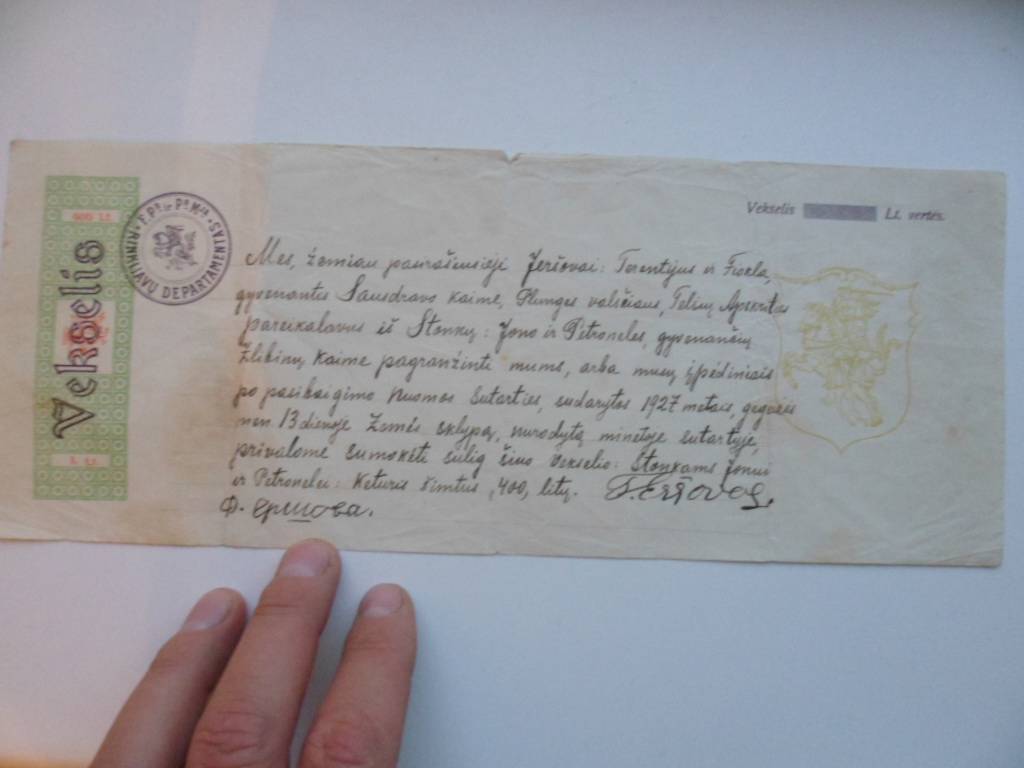 Vekselis
1. Lt.
RINKLIAVŲ DEPARTAMENTAS
Vekselis Lt. vertės.
Mes, žemiau pasirašiusieji Jeršovai: Terentijus ir Fiokla,
gyvenantis Sausdravo kaime, Plungės valsčiaus, Telšių Apskrities
pareikalavus iš Stonkų: Jono ir Petronelės, gyvenančių
Žlibinų kaime pagrąžinti mums, arba musų įpėdiniais
po pasibaigimo Nuomos Sutarties, sudarytos 1927 metais, gegužės
mėn. 13 dienoje Žemės sklypą, nurodytą minėtoje sutartyje,
privalome sumokėti sulig šiuo vekselio: Stonkams Jonui
ir Petronelei: Keturis šimtus, 400, litų. T. Eršovas.
Ф. Ершова.